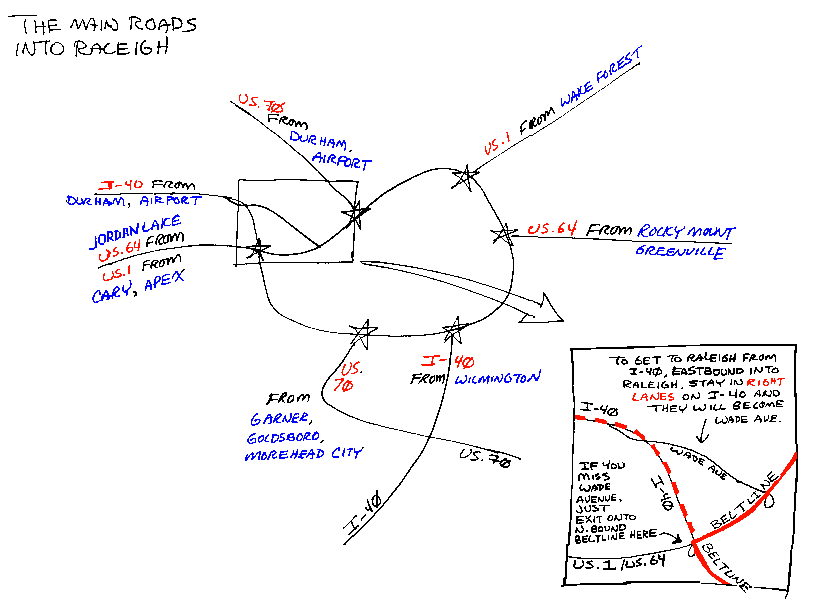 THE MAIN ROADS
INTO RALEIGH
US.70
FROM
DURHAM,
AIRPORT
US.1 FROM WAKE FOREST
I-40 FROM
DURHAM, AIRPORT
JORDAN LAKE
US.64 FROM
US.1 FROM
CARY, APEX
US.64 FROM ROCKY MOUNT
GREENVILLE
US.
70
FROM
GARNER,
GOLDSBORO,
MOREHEAD CITY
I-40
FROM WILMINGTON
US.70
I-40
TO GET TO RALEIGH FROM
I-40, EASTBOUND INTO
RALEIGH, STAY IN RIGHT
LANES ON I-40 AND
THEY WILL BECOME
WADE AVE.
I-40
WADE AVE
I-40
IF YOU
MISS
WADE
AVENUE,
JUST
EXIT ONTO
N. BOUND
BELTLINE HERE
BELTLINE
BELTLINE
US.1/US.64